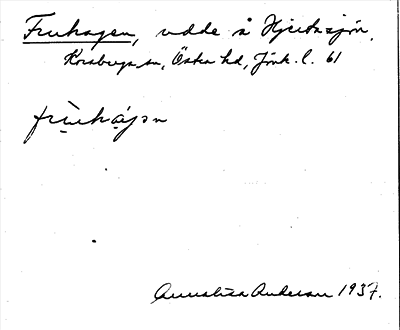 Fruhagen, udde å Hjertasjön.
Korsberga sn, Östra hd, Jönk. l. 61
frùhàgən
Annalisa Anderson 1937.